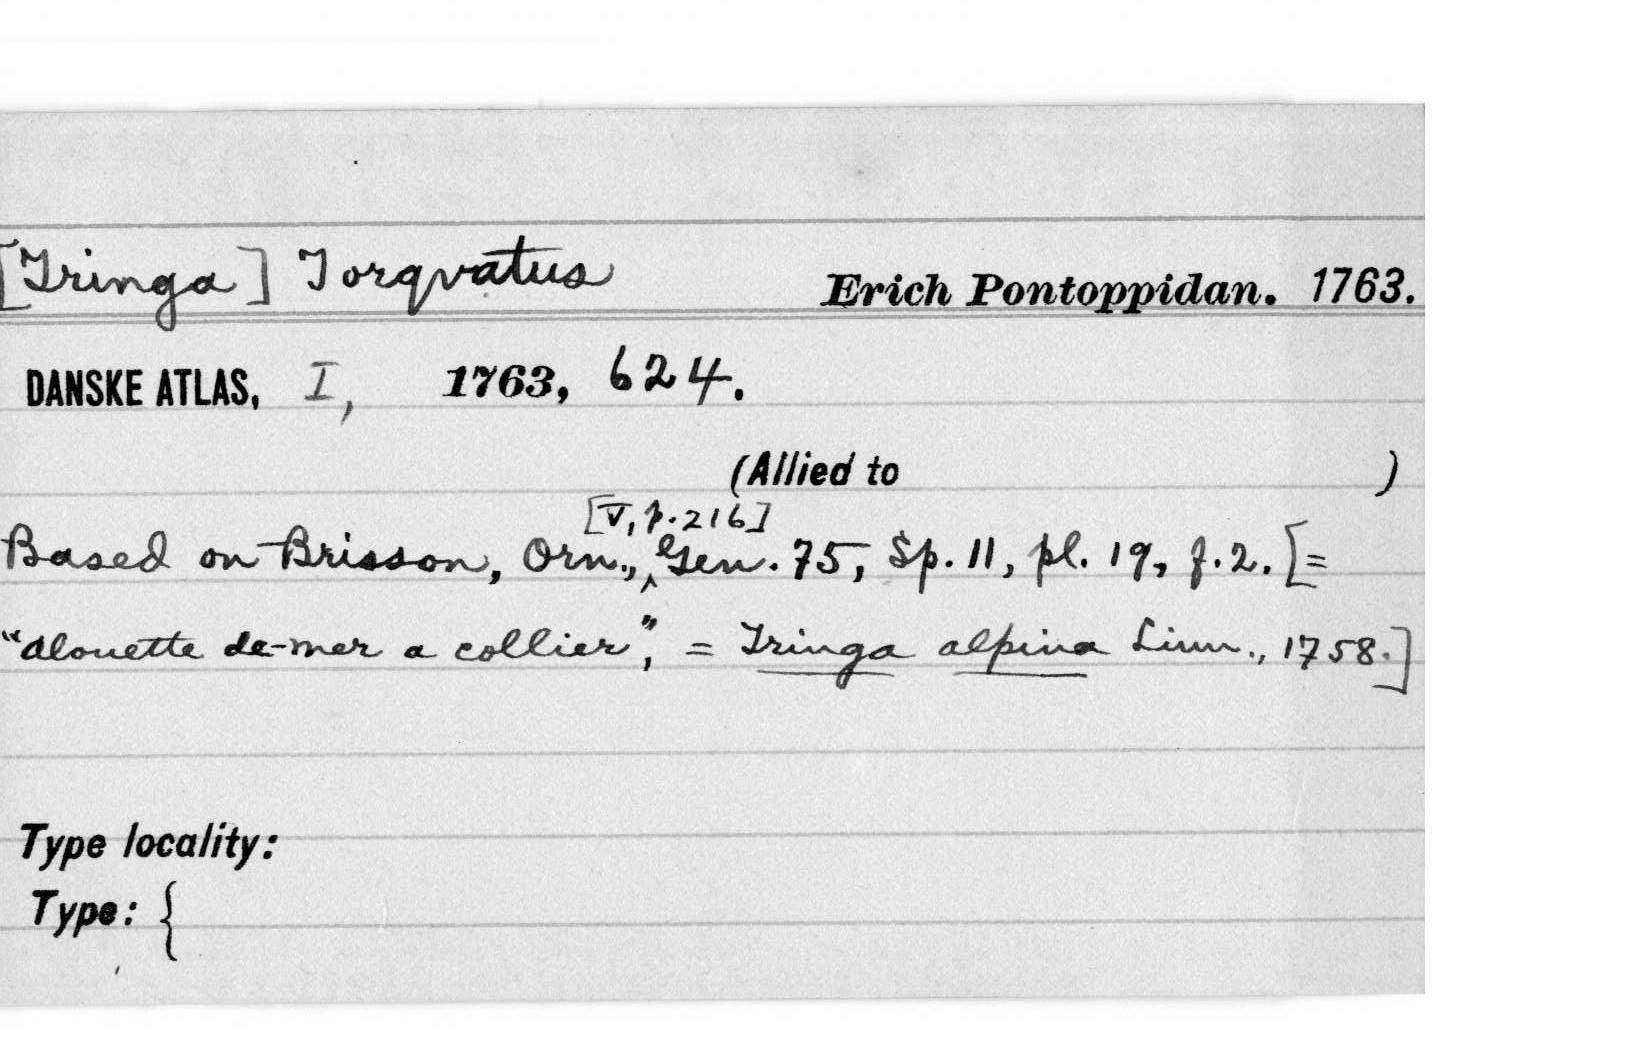 [Tringa] Torqvatus Erich Pontoppidan. 1763.
DANSKE ATLAS, I, 1763, 624.
(Allied to )
[V, p. 216]
Based on Brisson, Orn., ^ Gen. 75, Sp. 11, pl. 19, f. 2. [=
"alouette de-mer a collier", = Tringa alpina Linn., 1758.]
Type locality:
Type: {